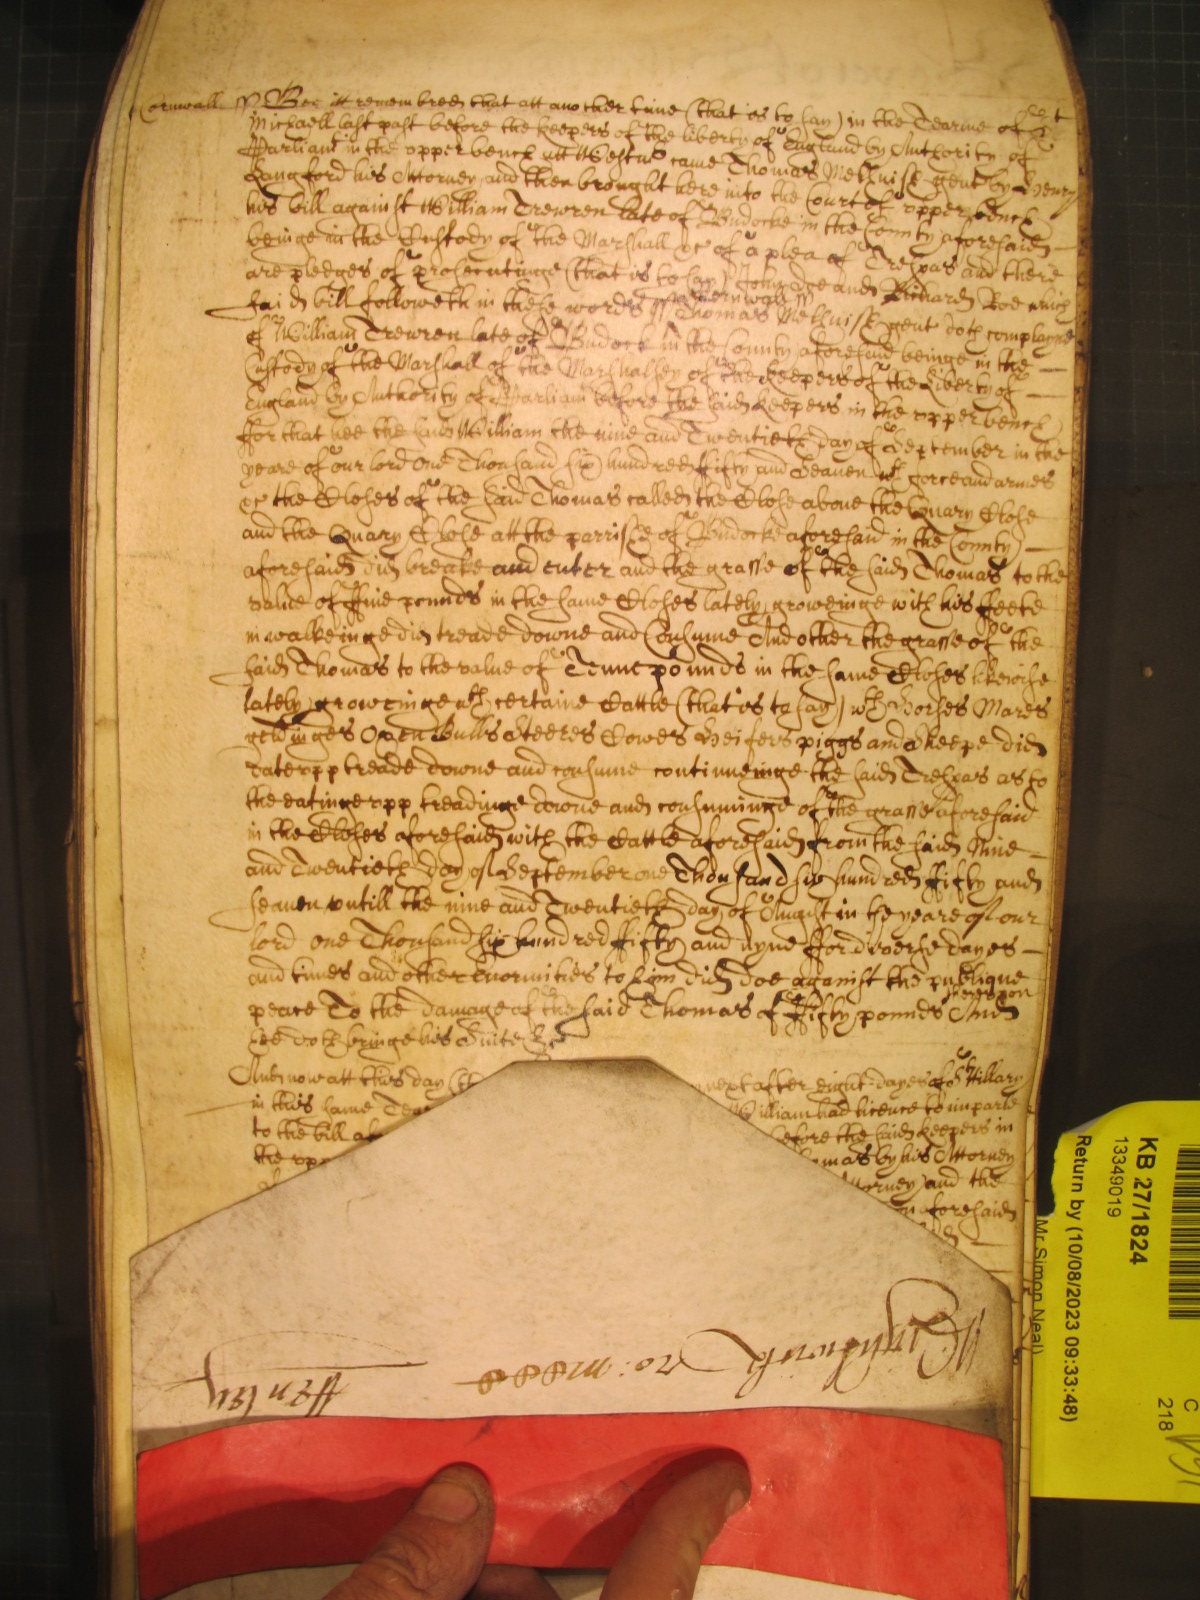 Cornwall ss Bee itt remembred that att another time (that is to say) in the Tearme of St
Michaell last past before the keepers of the liberty of England by Authority of
Parliamt in the upper bench att Westmr came Thomas Methuish gent by Henry
Langford his Attorney and then brought here into the Court of upper bench
his bill against William Trewren late of Budocke in the County aforesaid
beinge in the Custody of the Marshall &c of a plea of Trespas and there
are pledges of prosecutinge (that is to say) John Doe and Richard Roe which
said bill followeth in these words ss Cornwall ss Thomas Methuish gent doth complayne
of William Trewren late of Budock in the County aforesaid beinge in the
Custody of the Marshall of the Marshalsey of the keepers of the Liberty of
England by Authority of Parliamt before the said keepers in the upper bench
ffor that hee the said William the nine and Twentieth day of September in the
yeare of our lord One Thousand six hundred fifty and Seaven wth force and armes
&c the Closes of the said Thomas called the Close above the Quary Close
and the Quary Close att the parrish of Budocke aforesaid in the County
aforesaid did breake and enter and the grasse of the said Thomas to the
value of ffive pounds in the same Closes lately groweinge with his ffeete
in walkeinge did treade downe and Consume And other the grasse of the
said Thomas to the value of Tenne pounds in the same Closes likewise
lately groweinge wth certaine Cattle (that is to say) wth Horses Mares
geldinges Oxen Bulls Steeres Cowes Heifers piggs and sheepe did
eate upp treade downe and consume continueinge the said Trespas as to
the eatinge upp treadinge downe and consuminge of the grasse aforesaid
in the Closes aforesaid with the Cattle aforesaid from the said Nine
and Twentieth day of September one Thousand six hundred ffifty and
seaven untill the nine and Twentieth day of August in the yeare of our
lord One Thousand six hundred ffifty and nyne ffor diverse dayes
and times and other Enormities to him did doe against the publique
peace To the damage of the said Thomas of ffifty pounds And thereupon
hee doth bringe his Suite &c
And now att this day next after eight dayes of St Hillary
in this same William had licence to imparle
to the bill before the said keepers in
the Thomas by his Attorney
Attorney and the
aforesaid
Ro: m
KB 27/1824
13349019
Return by (10/08/2023 09:33:48)
Mr Simon Neal
C
218